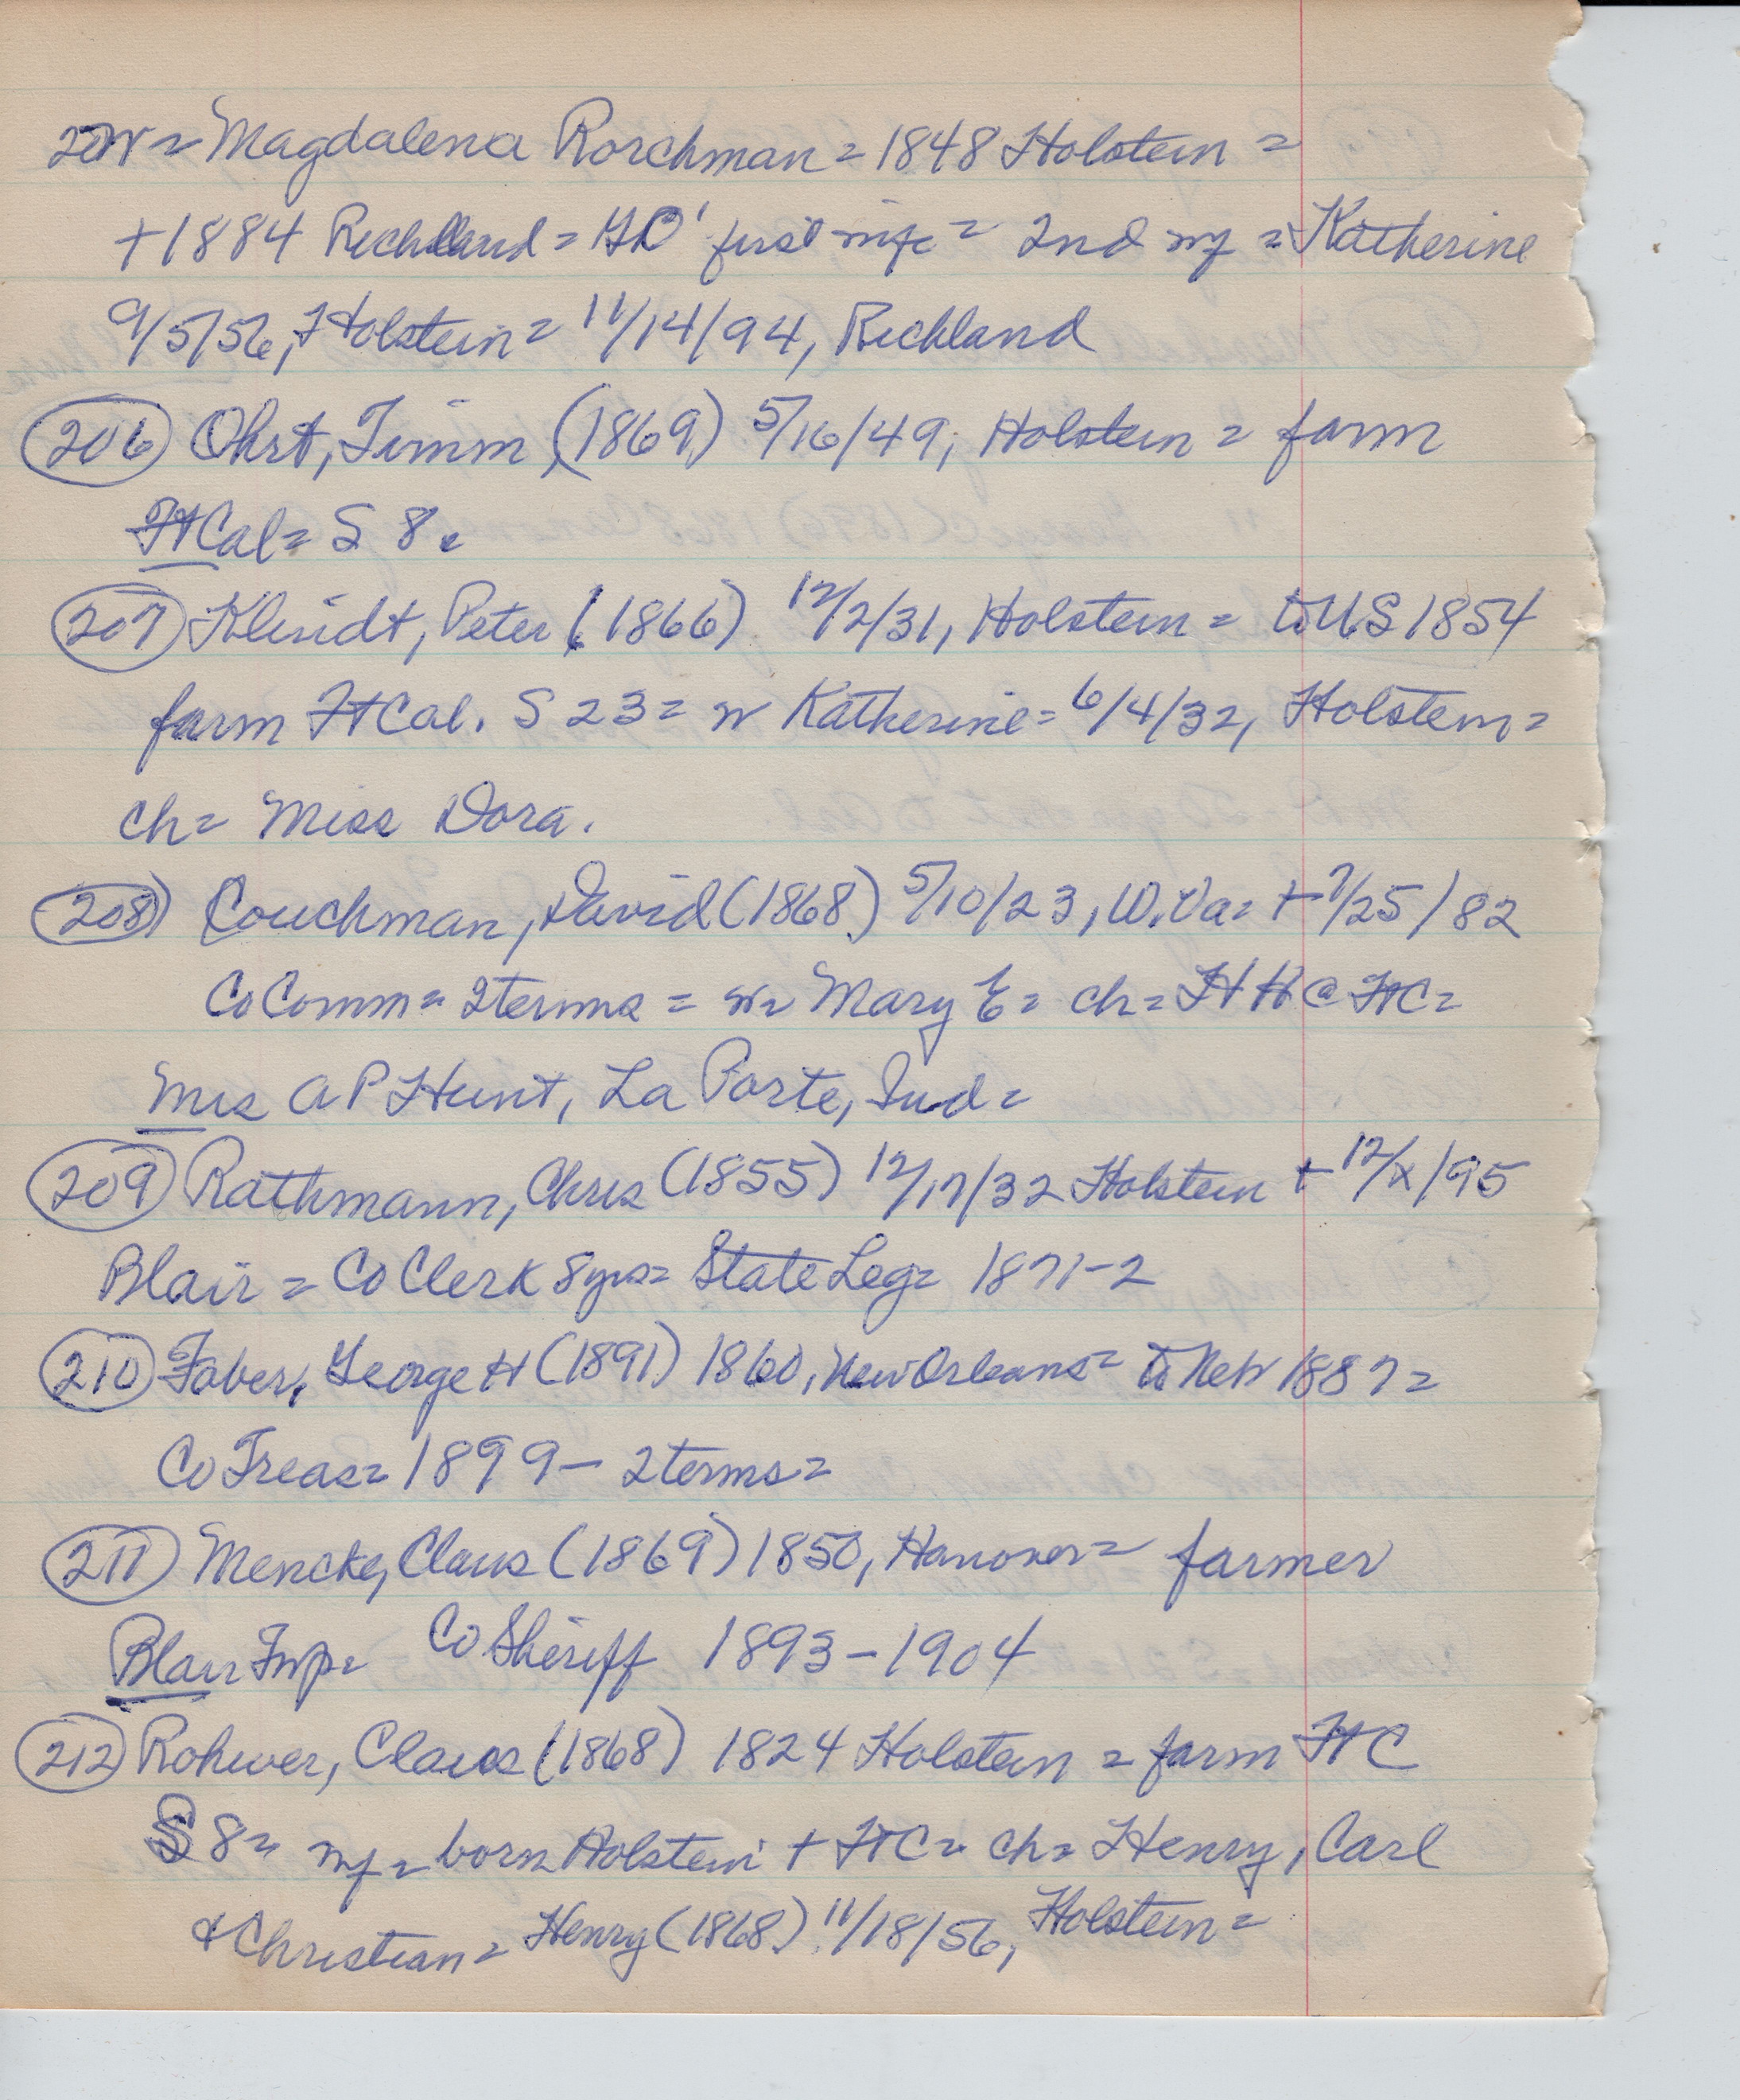 W = Magdalena Rorchman = 1848 Holstein =
+ 1884 Richland = first wife = 2nd wf = Katherine
9/5/56, Holstein = 11/14/94, Richland
(206) Ohrt, Timm (1869) 5/16/49, Holstein = farm
FtCal = S 8.
(207) Klindt, Peter (1866) 12/2/31, Holstein = to US 1854
farm FtCal. S 23 = w Katherine = 6/4/32, Holstein =
ch = Miss Dora.
(208) Couchman, David (1868) 5/10/23, W.Va = + 7/25/82
CoComm = 2 terms = w = Mary E = ch = H H @ FtC =
Mrs A P Hunt, La Porte, Ind =
(209) Rathmann, Chris (1855) 12/17/32 Holstein + 12/x/95
Blair = Co Clerk 8 yrs = State Leg = 1871-2
(210) Faber, George H (1891) 1860, New Orleans = to Neb 1887 =
Co Treas = 1899 - 2 terms =
(211) Mencke, Claus (1869) 1850, Hanover = farmer
Blair Twp = Co Sheriff 1893-1904
(212) Rohwer, Claus (1868) 1824 Holstein = farm FtC
S 8 = wf = born Holstein + FtC = ch = Henry, Carl
& Christian = Henry (1868) 11/18/56, Holstein =